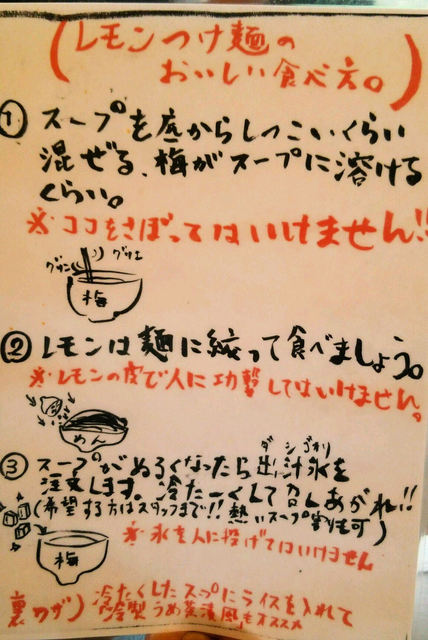 (レモンつけ麺の
おいしい食べ方。)
① スープを底からしつこいくらい
混ぜる、梅がスープに溶ける
くらい。
※ココをさぼってはいけません!!
グサッ グサエ
梅
② レモンは麺に絞って食べましょう。
※レモンの皮で人に攻撃してはいけません。
めん
ダシゴオリ
③ スープがぬるくなったら出汁氷を
注文します。冷たーくして召しあがれ!!
(希望する方はスタッフまで!! 熱いスープ割も可)
※氷を人に投げてはいけません
梅
裏ワザ) 冷たくしたスープにライスを入れて
冷製うめ茶漬風もオススメ